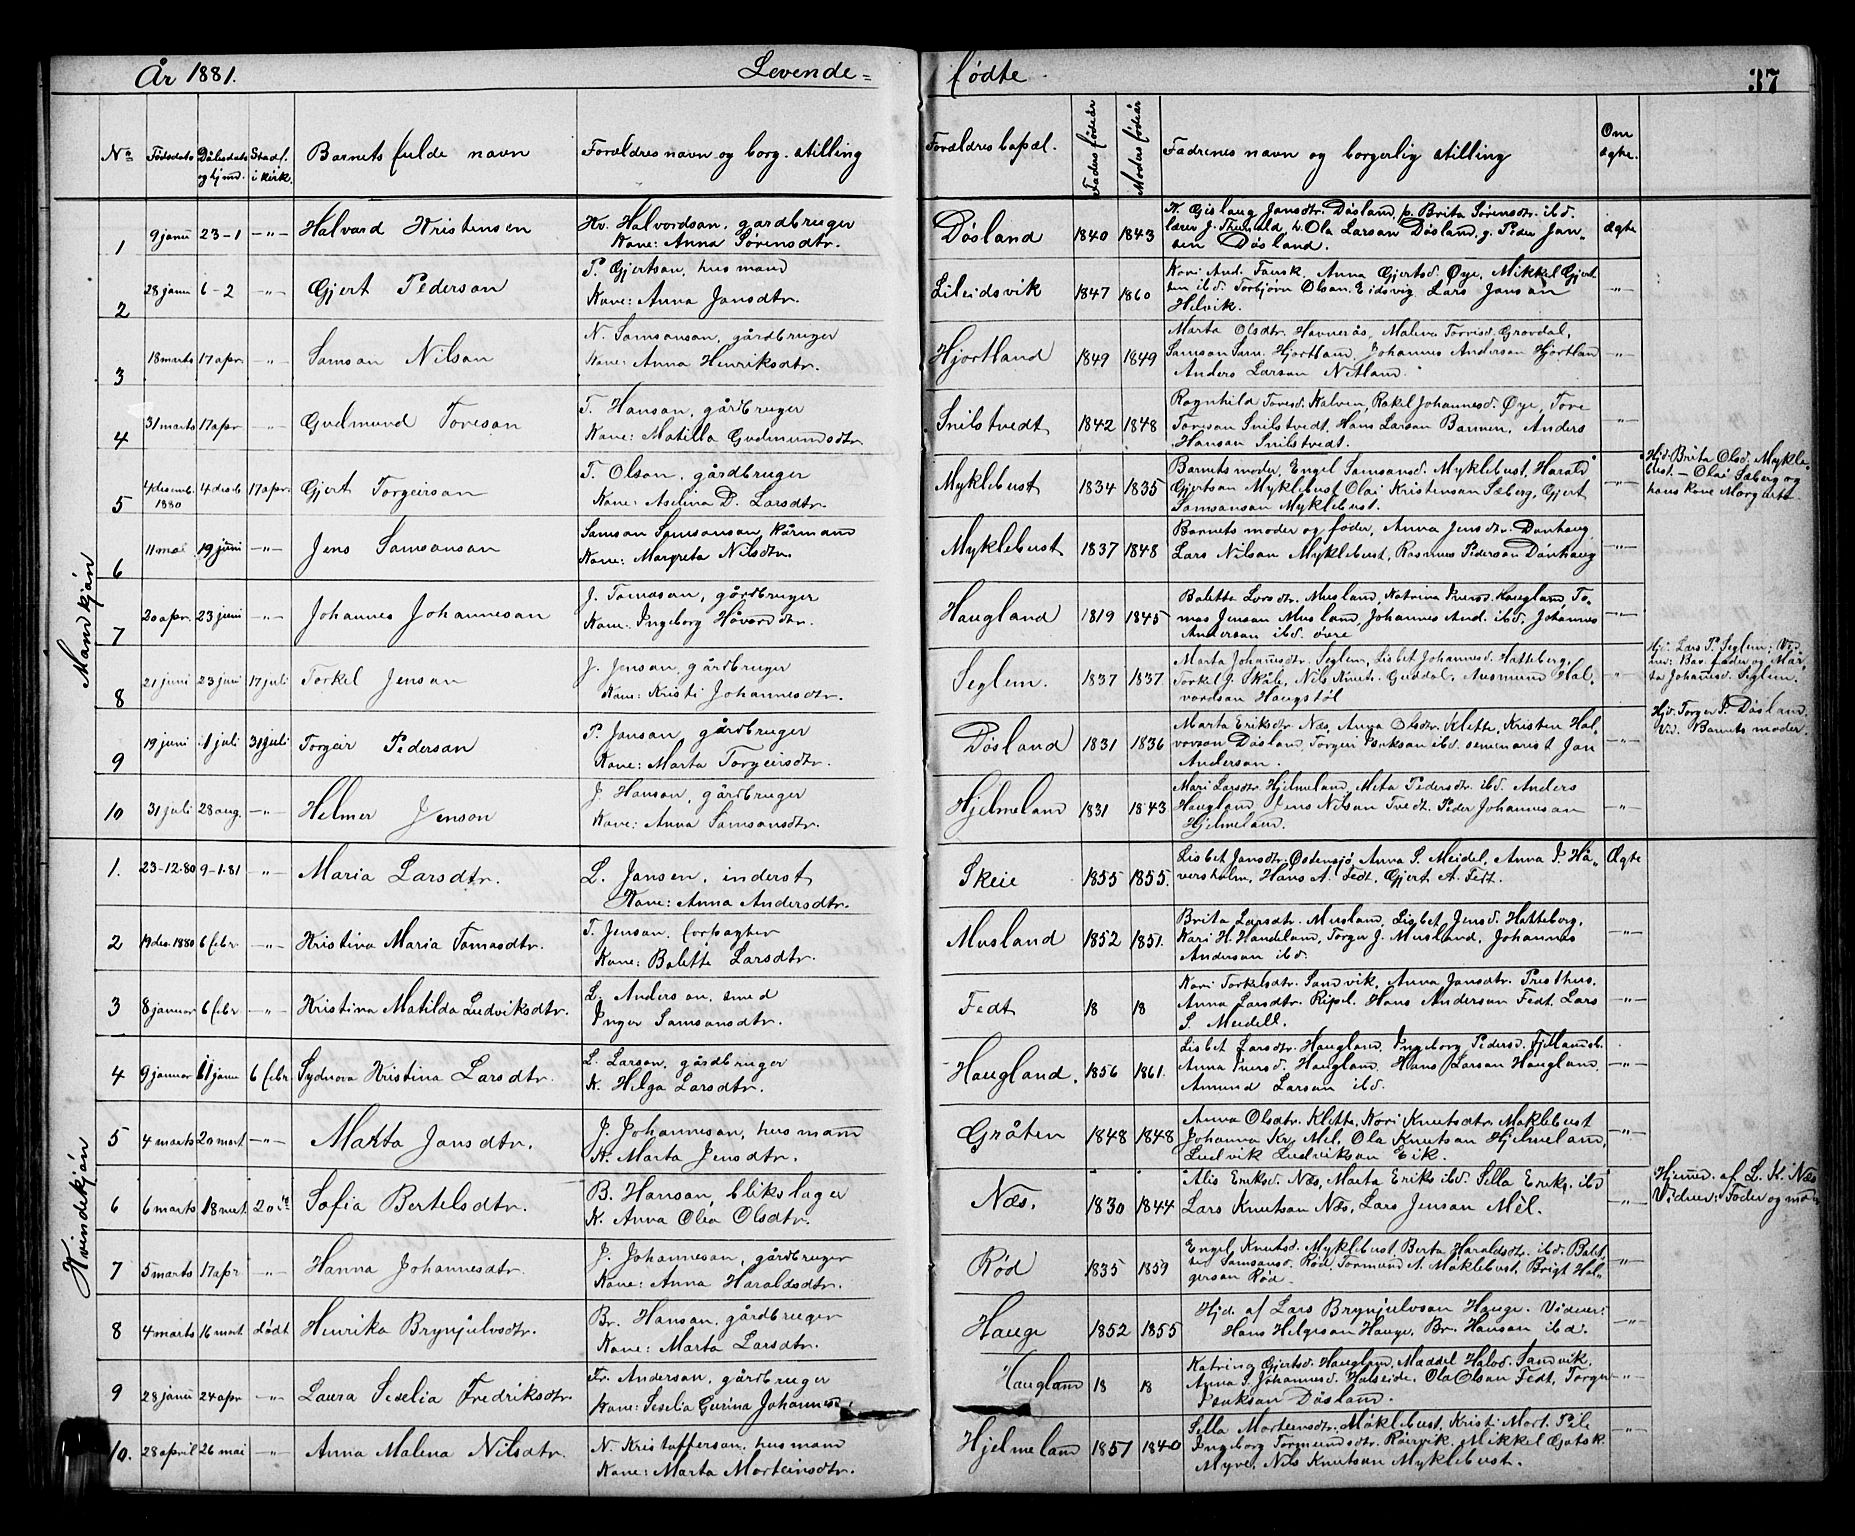 År 1881. Levende= fødte. 37
No Fødsdato Dåbsdato og hjmd. Stadf. i kirk. Barnets fulde navn Forældres navn og borg. stilling Forældres bopæl. Faders fødeår Moders fødeår Fadrenes navn og borgerlig stilling Om ægte.
Mandkjön
1 9 janu 23-1 -"- Halvard Kristensen Kr. Halvordsen, gardbruger
Kone: Anna Sørensdtr. Døsland 1840 1843 K. Gislaug Jansdtr. Døsland, p. Brita Sørensdtr. ibd.
lærer J. Ola Larsan Døsland, g. Peder Jan-
sen Døsland. Ægte
2 28 janu 6-2 -"- Gjert Pedersan P. Gjertsan, husmand
Kone: Anna Jansdtr. Lileidsvik 1847 1860 Kari And. Anna Gjertsd. Øye, Mikkel Gjert
sen ibd. Torbjørn Olsan Eidsvig Lars Jansan
Helvik. -"-
3 18 marts 17 apr. -"- Samsan Nilsan N. Samsansan, gårdbruger
Kone: Anna Henriksdtr. Hjortland 1849 1849 Marta Olsdtr. Havnerås, Malene Grovdal,
Samsan Sam. Hjortland, Johannes Andersan Hjortlan
Anders Larsan Netland. -"-
4 31 marts 17 apr -"- Gudmund Toresan T. Hansan, gårdbruger
Kone: Matilla Gudmundsdtr. Snilstvedt 1842 1848 Ragnhild Toresd. Kalven, Rakel Johannesd. Øye, Tore
Toresan Snilstvedt, Hans Larsan Barmen, Anders
Hansan Snilstvedt. -"-
5 4 desemb. 1880 4 desb 17 apr. Gjert Torgeirsan T. Olsan, gårdbruger
Kone: Aselina D. Larsdtr. Myklebust 1834 1835 Barnets moder, Engel Samsansd. Myklebust, Harald
Gjertsan Myklebust, Olai Kristensan Sæberg, Gjert
Samsansan Myklebust. -"- Hjd. Brita Olsd. Mykle-
bust. – Olai Sæberg og
hans kone Margarta
6 11 mai 19 juni -"- Jens Samsansan Samsan Samsansan, kårmand
Kone: Margreta Nilsdtr. Myklebust 1837 1848 Barnets moder og fader, Anna Jensdtr. Dønhaug
Lars Nilsan Myklebust, Rasmus Pedersan Dønhaug -"-
7 20 apr. 23 juni -"- Johannes Johannesan J. Tomasan, gårdbruger
Kone: Ingeborg Håvardtr. Haugland 1819 1845 Balette Larsdtr. Musland, Katrina Iversd. Haugland, To-
mas Jensan Musland, Johannes And. ibd, Johannes
Andersan ibd. øvre -"-
8 21 juni 23 juni 17 juli Torkel Jensan J. Jensan, gårdbruger
Kone: Kristi Johannesdtr. Seglem. 1837 1837 Marta Johannesdtr. Seglem, Lisbet Johannesd. Hatteberg,
Torkel J. Skåle, Nils Knuts. Guddal, Aasmund Hal-
vordsan Haugstøl -"- Hjd. Lars P. Seglem: Vid-
ner: Bar. fader og Mar-
ta Johannesd. Seglem.
9 19 juni 1 juli 31 juli Torgeir Pedersan P. Jansan, gårdbruger
Kone: Marta Torgeirsdtr. Døsland 1831 1836 Marta Eriksdtr. Næs, Anna Olsdtr. Klette, Kristen Hal-
vorson Døsland, Torgeir Isaksan ibd. seminarist Jan
Andersan. -"- Hjd. Torger P. Døsland.
Vid. Barnets moder.
10 31 juli 28 aug. -"- Helmer Jenson J. Hansan, gårdbruger
Kone: Anna Samsansdtr. Hjelmeland 1831 1843 Mari Larsdtr. Hjelmeland, Meta Pedersdtr. ibd. Anders
Haugland, Jens Nilsan Tvedt. Peder Johannesan
Hjelmeland. -"-
Kvindekjön
1. 23-12.80 9-1.81 -"- Maria Larsdtr. L. Jansen, inderst
Kone: Anna Andersdtr. Skeie 1855 1855. Lisbet Jansdtr. Østensjø, Anna S. Meidel, Anna P. Hå-
versholm, Hans A. Fedt, Gjert A. Fedt. Ægte
2 19 des. 1880 6 febr -"- Kristina Maria Tomasdtr. T. Jensan, forpagter
Kone: Balette Larsdtr. Musland 1852 1851. Brita Larsdtr. Musland, Lisbet Jensd. Hatteberg,
Kari H. Handeland, Torger J. Musland, Johannes
Andersan ibd. -"-
3 8 januar 6 febr -"- Kristina Matilda Ludviksdtr. L. Andersan, smed
Inger Samsansdtr. Fedt 18 18 Kari Torkelsdtr. Sandvik, Anna Jansdtr. Presthus,
Anna Larsdtr. Ripel. Hans Andersan Fedt, Lars
S. Meidell. -"-
4 9 januar 11 janu 6 febr. Sydnova Kristina Larsdtr. L. Larsan, gårdbruger
K. Helga Larsdtr. Haugland. 1856 1861. Lisbet Larsdtr. Haugland, Ingeborg Pedersd.
Anna Iversd. Haugland, Hans Larsan Haugland,
Amund Larsan ibd. -"-
5 4 marts 20 mart -"- Marta Jansdtr. J. Johannesan, husmann
K. Marta Jensdtr. Gråten 1848 1848 Anna Olsdtr. Klette, Kari Knutsdtr. Møklebust
Johanna Kr. Mel, Ola Knutsan Hjelmeland,
Ludvik Ludviksan Eik. -"-
6 6 marts 18 mart. 20 Sofia Bertelsdtr. B. Hansan, blikslager
K. Anna Olea Olsdtr. Næs. 1830 1844 Alis Eriksd. Næs, Marta Eriks ibd Sella Eriks. ibd
Lars Knutsan Næs, Lars Jensan Mel. -"- Hjemd. af L. K. Næs
Vidner: Fader og mor
7 5 marts 17 apr -"- Hanna Johannesdtr. J. Johannesan, gårdbruger
Kone: Anna Haraldsdtr. Rød 1835 1859 Engel Knutsd. Myklebust, Berta Haraldsdtr. ibd. Balet-
te Samsansd. Rød, Tormund A. Møklebust. Brigt Hal-
gersan Rød. -"-
8 4 marts 16 mart. dødt Henrika Brynjulvsdtr. Br. Hansan, gårdbruger
Kone: Marta Larsdtr. Hauge 1852 1855 Hjd. af Lars Brynjulvsan Hauge. Vidner:
Hans Helgesan Hauge, Br. Hansan ibd. -"-
9 28 janu 24 apr -"- Laura Seselia Fredriksdtr. Fr. Andersan, gårdbruger
Kone: Seselia Gurina Johannesd. Haugland 18 18 Katrina Gjertsd. Haugland, Maddel Halvd. Sandvik,
Anna S. Johannesd. Halseide, Ola Olsan Fedt, Torger
Isaksan Døsland. -"-
10. 28 april 26 mai -"- Anna Malena Nilsdtr. N. Kristaffersan, husmann
Kone: Marta Morteinsdtr. Hjelmeland 1857 1840 Sella Morteinsdtr. Møklebust, Kristi Mort. Pile
Ingeborg Tormundsdtr. Røirvik. Mikkel
Myre. Nils Knutsan Myklebust. -"-